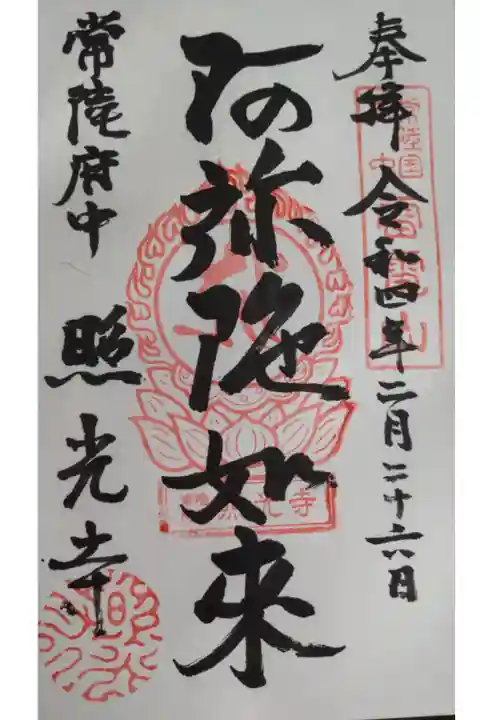 奉拝 令和四年二月二十六日
阿弥陀如来
常陸府中 照光寺
常陸国
照光寺